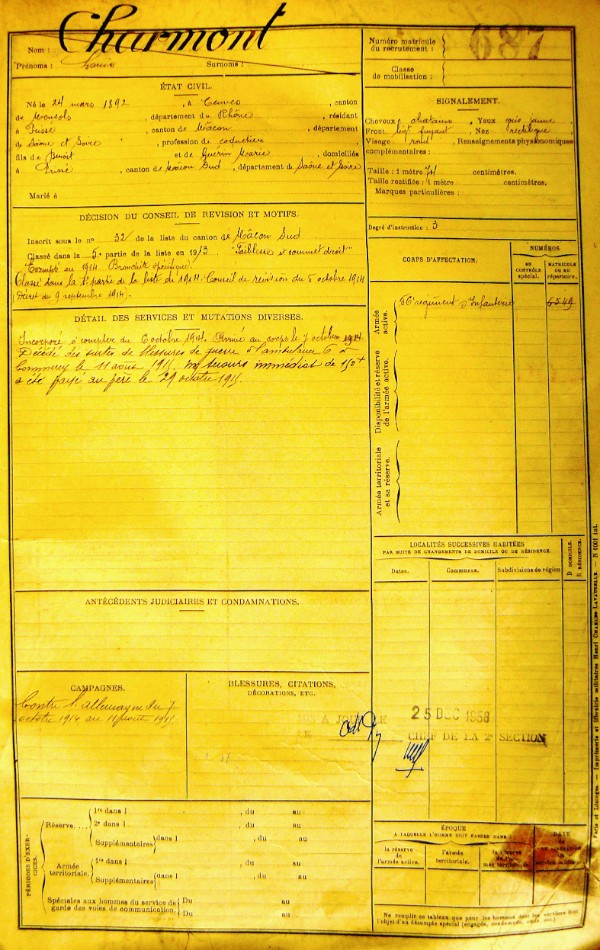 Nom : Charmont
Prénoms : Louis Surnoms :
Numéro matricule
du recrutement : 687
Classe
de mobilisation :
ÉTAT CIVIL.
Né le 24 mars 1892, à canton
de Monsols, département du Rhône, résidant
à canton de Mâcon, département
de Saône et Loire, profession de
fils de Benoit et de Guérin Marie, domiciliés
à Prissé, canton de Mâcon Sud, département de Saône et Loire
Marié à
SIGNALEMENT.
Cheveux châtains, Yeux gris jaune
Front fuyant, Nez rectiligne
Visage rond, Renseignements physionomiques
complémentaires :
Taille : 1 mètre 71 centimètres.
Taille rectifiée : 1 mètre centimètres.
Marques particulières :
Degré d'instruction : 3
DÉCISION DU CONSEIL DE REVISION ET MOTIFS.
Inscrit sous le no 32 de la liste du canton de Mâcon Sud
Classé dans la 5e partie de la liste en 1913 Faiblesse
Exempté en 1914 Bronchite spécifique
Classé dans la 1e partie de la liste de 1914. Conseil de révision du 5 octobre 1914
(Décret du 9 septembre 1914).
CORPS D'AFFECTATION.
NUMÉROS
au
CONTRÔLE
spécial.
MATRICULE
OU AU
répertoire.
Armée
active.
56e régiment d'Infanterie 6549
Disponibilité et réserve
de l'armée active.
Armée territoriale
et sa réserve.
DÉTAIL DES SERVICES ET MUTATIONS DIVERSES.
Incorporé à compter du 6 octobre 1914. Arrivé au corps le 7 octobre 1914.
Décédé des suites de blessures de guerre à l'ambulance 6 à
Commercy le 11 août 1915 secours immédiat de 150 f
a été payé au père le 29 octobre 1915.
LOCALITÉS SUCCESSIVES HABITÉES
PAR SUITE DE CHANGEMENTS DE DOMICILE OU DE RÉSIDENCE.
Dates. Communes. Subdivisions de région.
D. DOMICILE.
R. RÉSIDENCE.
ANTÉCÉDENTS JUDICIAIRES ET CONDAMNATIONS.
CAMPAGNES.
Contre l'Allemagne du 7
octobre 1914 au 11 août 1915
BLESSURES, CITATIONS,
DÉCORATIONS, ETC.
A JOUR LE 25 DEC 1958
LE CHEF DE LA 2e SECTION
PÉRIODES D'EXERCICES.
Réserve....
1re dans l , du au
2e dans l , du au
Supplémentaires dans l , du au
, du au
Armée
territoriale.
1re dans l , du au
Supplémentaires dans l , du au
, du au
Spéciales aux hommes du service de
garde des voies de communication.
Du au
Du au
ÉPOQUE
A LAQUELLE L'HOMME DOIT PASSER DANS :
la réserve
de l'armée active.
l'armée
territoriale.
la réserve
de l'armée territoriale.
DATE
Ne remplir ce tableau que pour les hommes dont les services font
l'objet d'un décompte spécial (engagés, omis, etc.)
Paris et Limoges. — Imprimerie et librairie militaires Henri CHARLES-LAVAUZELLE.